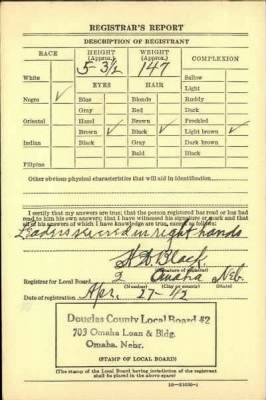 REGISTRAR'S REPORT
DESCRIPTION OF REGISTRANT
RACE HEIGHT (Approx.) WEIGHT (Approx.) COMPLEXION
5-3½ 147
White Sallow
EYES HAIR Light
Negro ✓ Blue Blonde Ruddy
Gray Red Dark
Oriental Hazel Brown Freckled
Brown ✓ Black ✓ Light brown ✓
Indian Black Gray Dark brown
Bald Black
Filipino
Other obvious physical characteristics that will aid in identification
I certify that my answers are true; that the person registered has read or has had
read to him his own answers; that I have witnessed his signature or mark and that
all of his answers of which I have knowledge are true, except as follows:
in right hands
Black
(Signature of registrar)
Registrar for Local Board 2 Omaha Neb.
(Number) (City or county) (State)
Date of registration Apr. 27-42
Douglas County Local Board #2
703 Omaha Loan & Bldg.
Omaha, Nebr.
(STAMP OF LOCAL BOARD)
(The stamp of the Local Board having jurisdiction of the registrant
shall be placed in the above space)